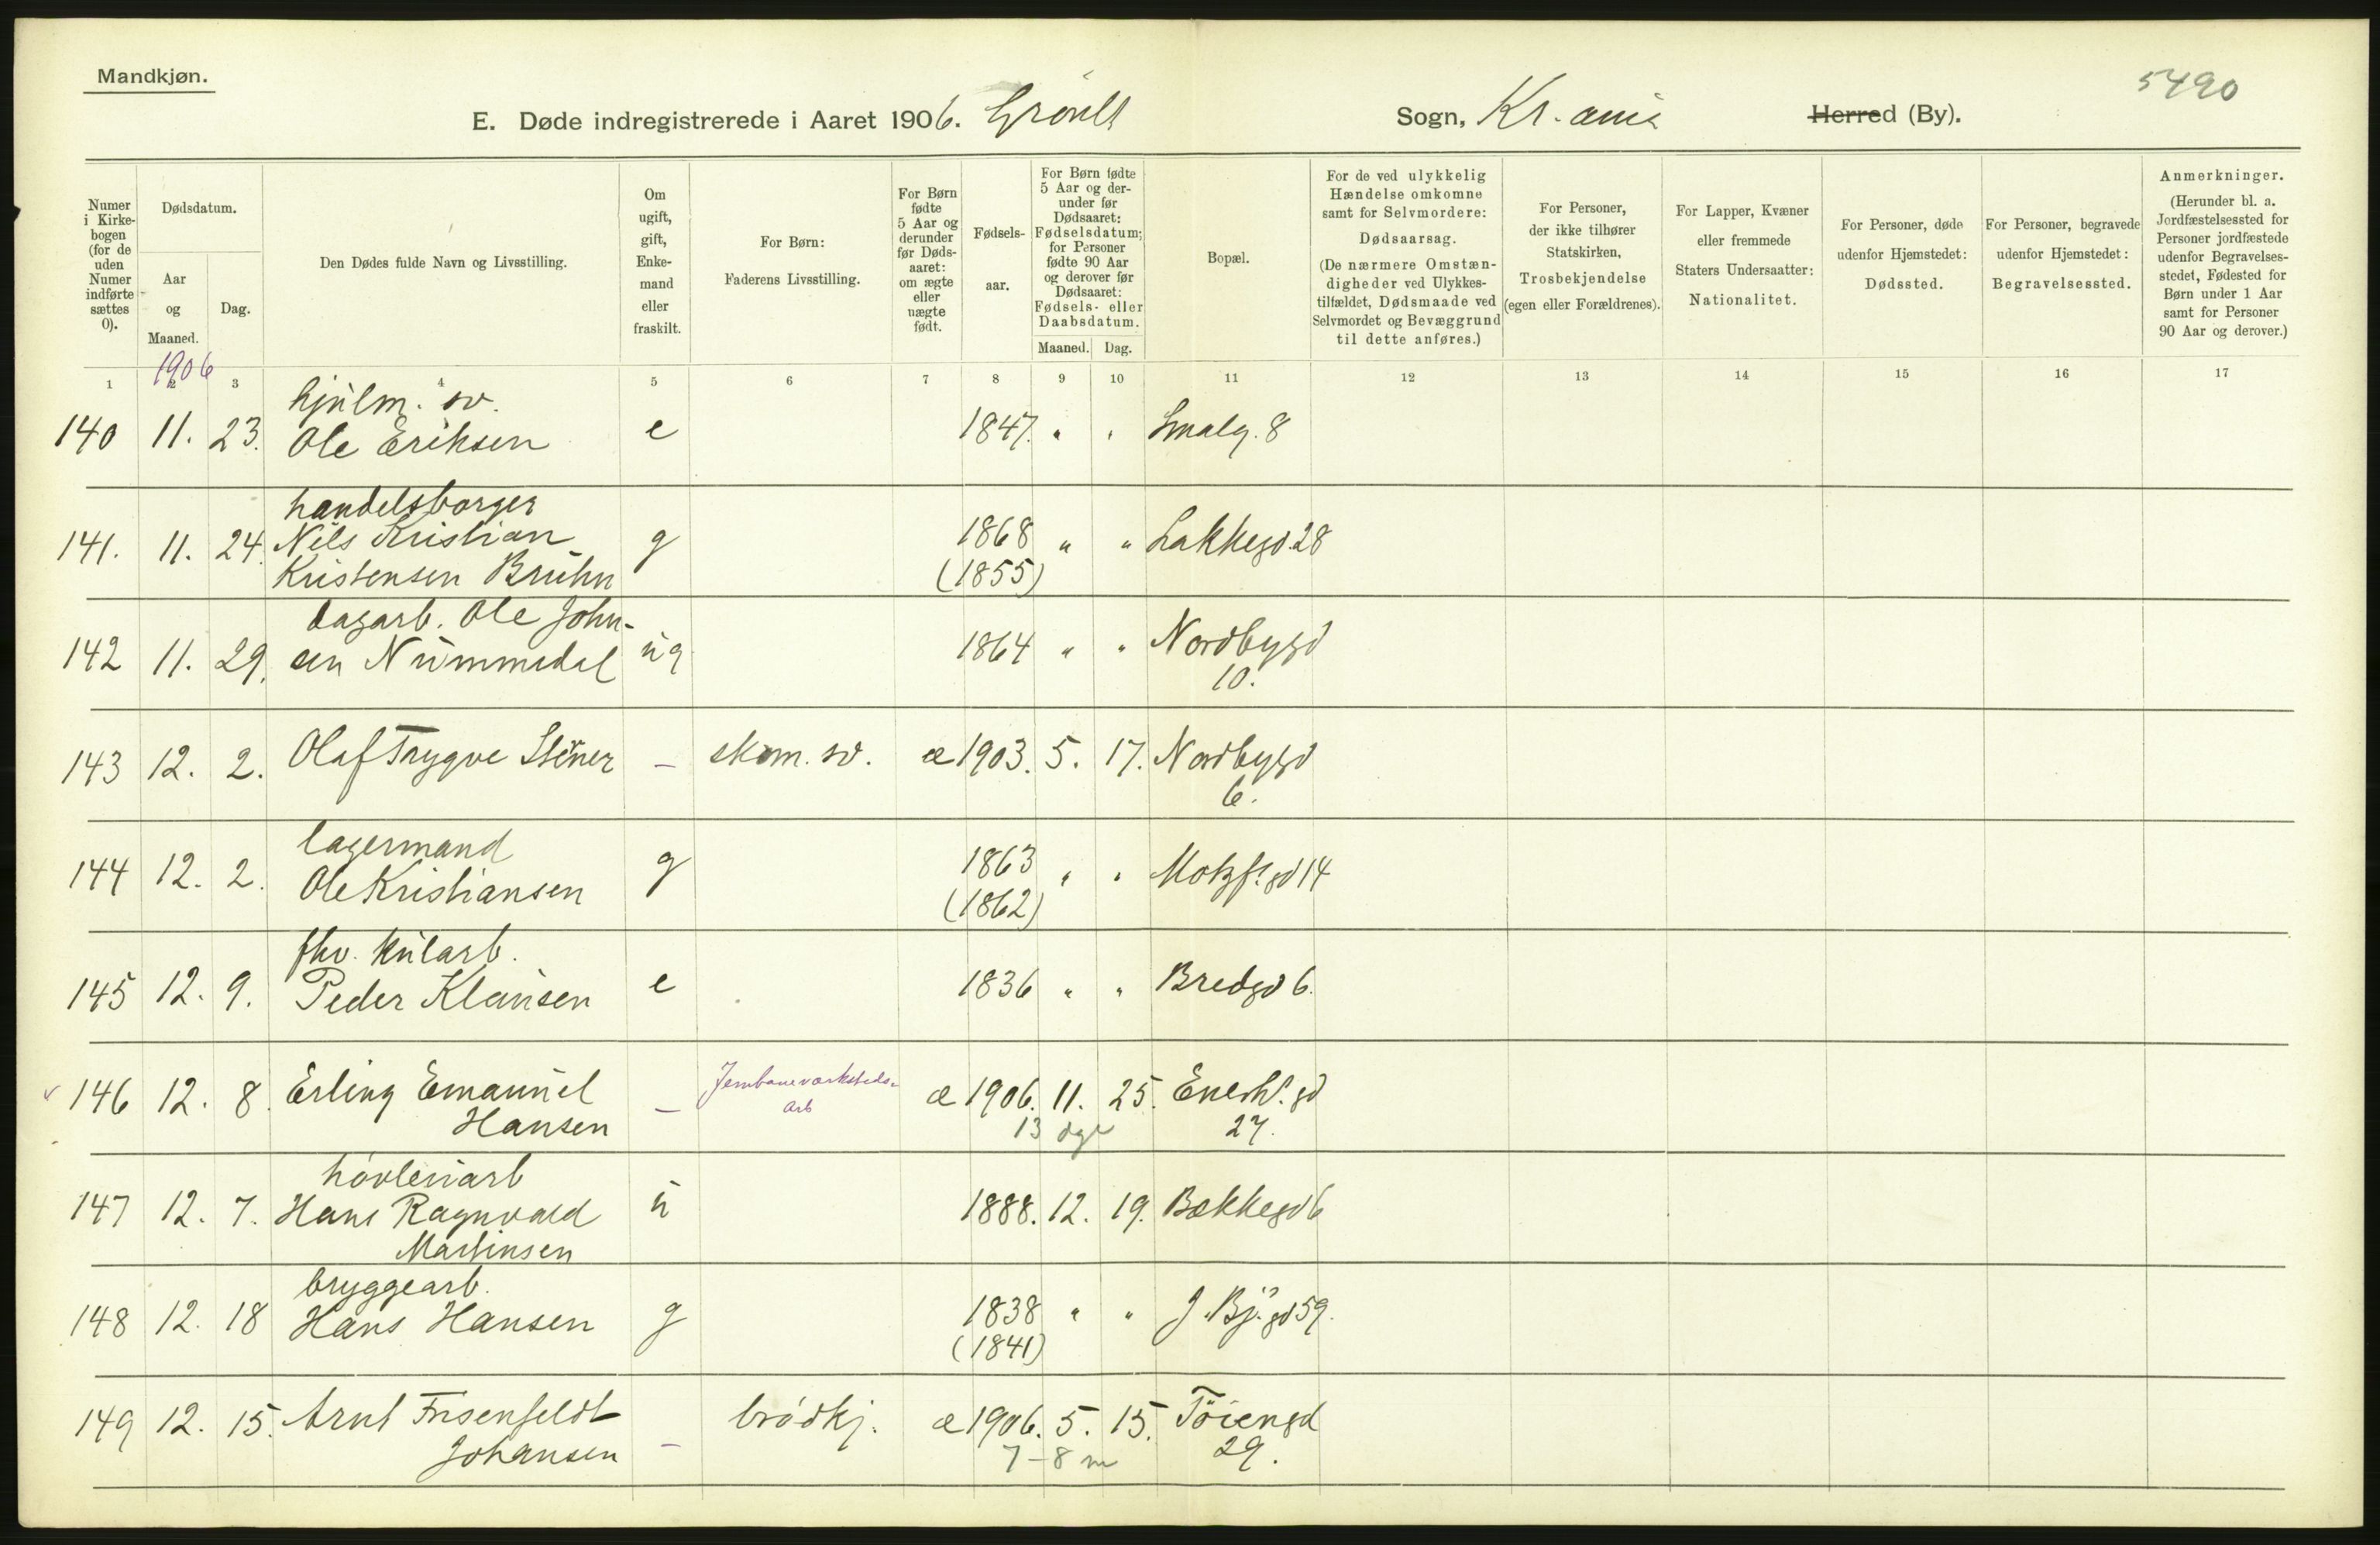 Mandkjøn.
5490
E. Døde indregistrerede i Aaret 1906. Grønl. Sogn, Kr.ania Herred (By).
Numer i Kirkebogen (for de uden Numer indførte sættes 0).
Dødsdatum.
Aar og Maaned.
Dag.
Den Dødes fulde Navn og Livsstilling.
Om ugift, gift, Enkemand eller fraskilt.
For Børn: Faderens Livsstilling.
For Børn fødte 5 Aar og derunder før Dødsaaret: om ægte eller uægte født.
Fødselsaar.
For Børn fødte 5 Aar og derunder før Dødsaaret: Fødselsdatum; for Personer fødte 90 Aar og derover før Dødsaaret: Fødsels- eller Daabsdatum.
Maaned. Dag.
Bopæl.
For de ved ulykkelig Hændelse omkomne samt for Selvmordere: Dødsaarsag. (De nærmere Omstændigheder ved Ulykkestilfældet, Dødsmaade ved Selvmordet og Bevæggrund til dette anføres.)
For Personer, der ikke tilhører Statskirken, Trosbekjendelse (egen eller Forældrenes).
For Lapper, Kvæner eller fremmede Staters Undersaatter: Nationalitet.
For Personer, døde udenfor Hjemstedet: Dødssted.
For Personer, begravede udenfor Hjemstedet: Begravelsessted.
Anmerkninger. (Herunder bl. a. Jordfæstelsessted for Personer jordfæstede udenfor Begravelsesstedet, Fødested for Børn under 1 Aar samt for Personer 90 Aar og derover.)
1 2 3 4 5 6 7 8 9 10 11 12 13 14 15 16 17
1906
hjulm. sv.
140 11. 23. Ole Eriksen e 1847. " " Smalg. 8
handelsborger
141. 11. 24. Nils Kristian g 1868 " " Lakkegd. 28
Kristensen Bruhn (1855)
dagarb. Ole John-
142 11. 29. sen Nummedal ug 1864 " " Nordbygd
10.
143 12. 2. Olaf Trygve Stener - skom. sv. æ 1903. 5. 17. Nordbygd
6.
lagermand
144 12. 2. Ole Kristiansen g 1863 " " Motzf.gd 14
(1862)
fhv. kularb.
145 12. 9. Peder Klausen e 1836 " " Bredgd 6.
146 12. 8. Erling Emanuel - Jernbaneværksteds- æ 1906. 11. 25. Enerh.gd
Hansen arb 13 dge 27.
høvleriarb
147 12. 7. Hans Ragnvald u 1888. 12. 19. Bækkegd 6
Martinsen
bryggearb.
148 12. 18 Hans Hansen g 1838 " " J. Bj. gd 59.
(1841)
149 12. 15. Arnt Frisenfeldt - brødkj. æ 1906. 5. 15. Tøiengd
Johansen 7-8 m 29.